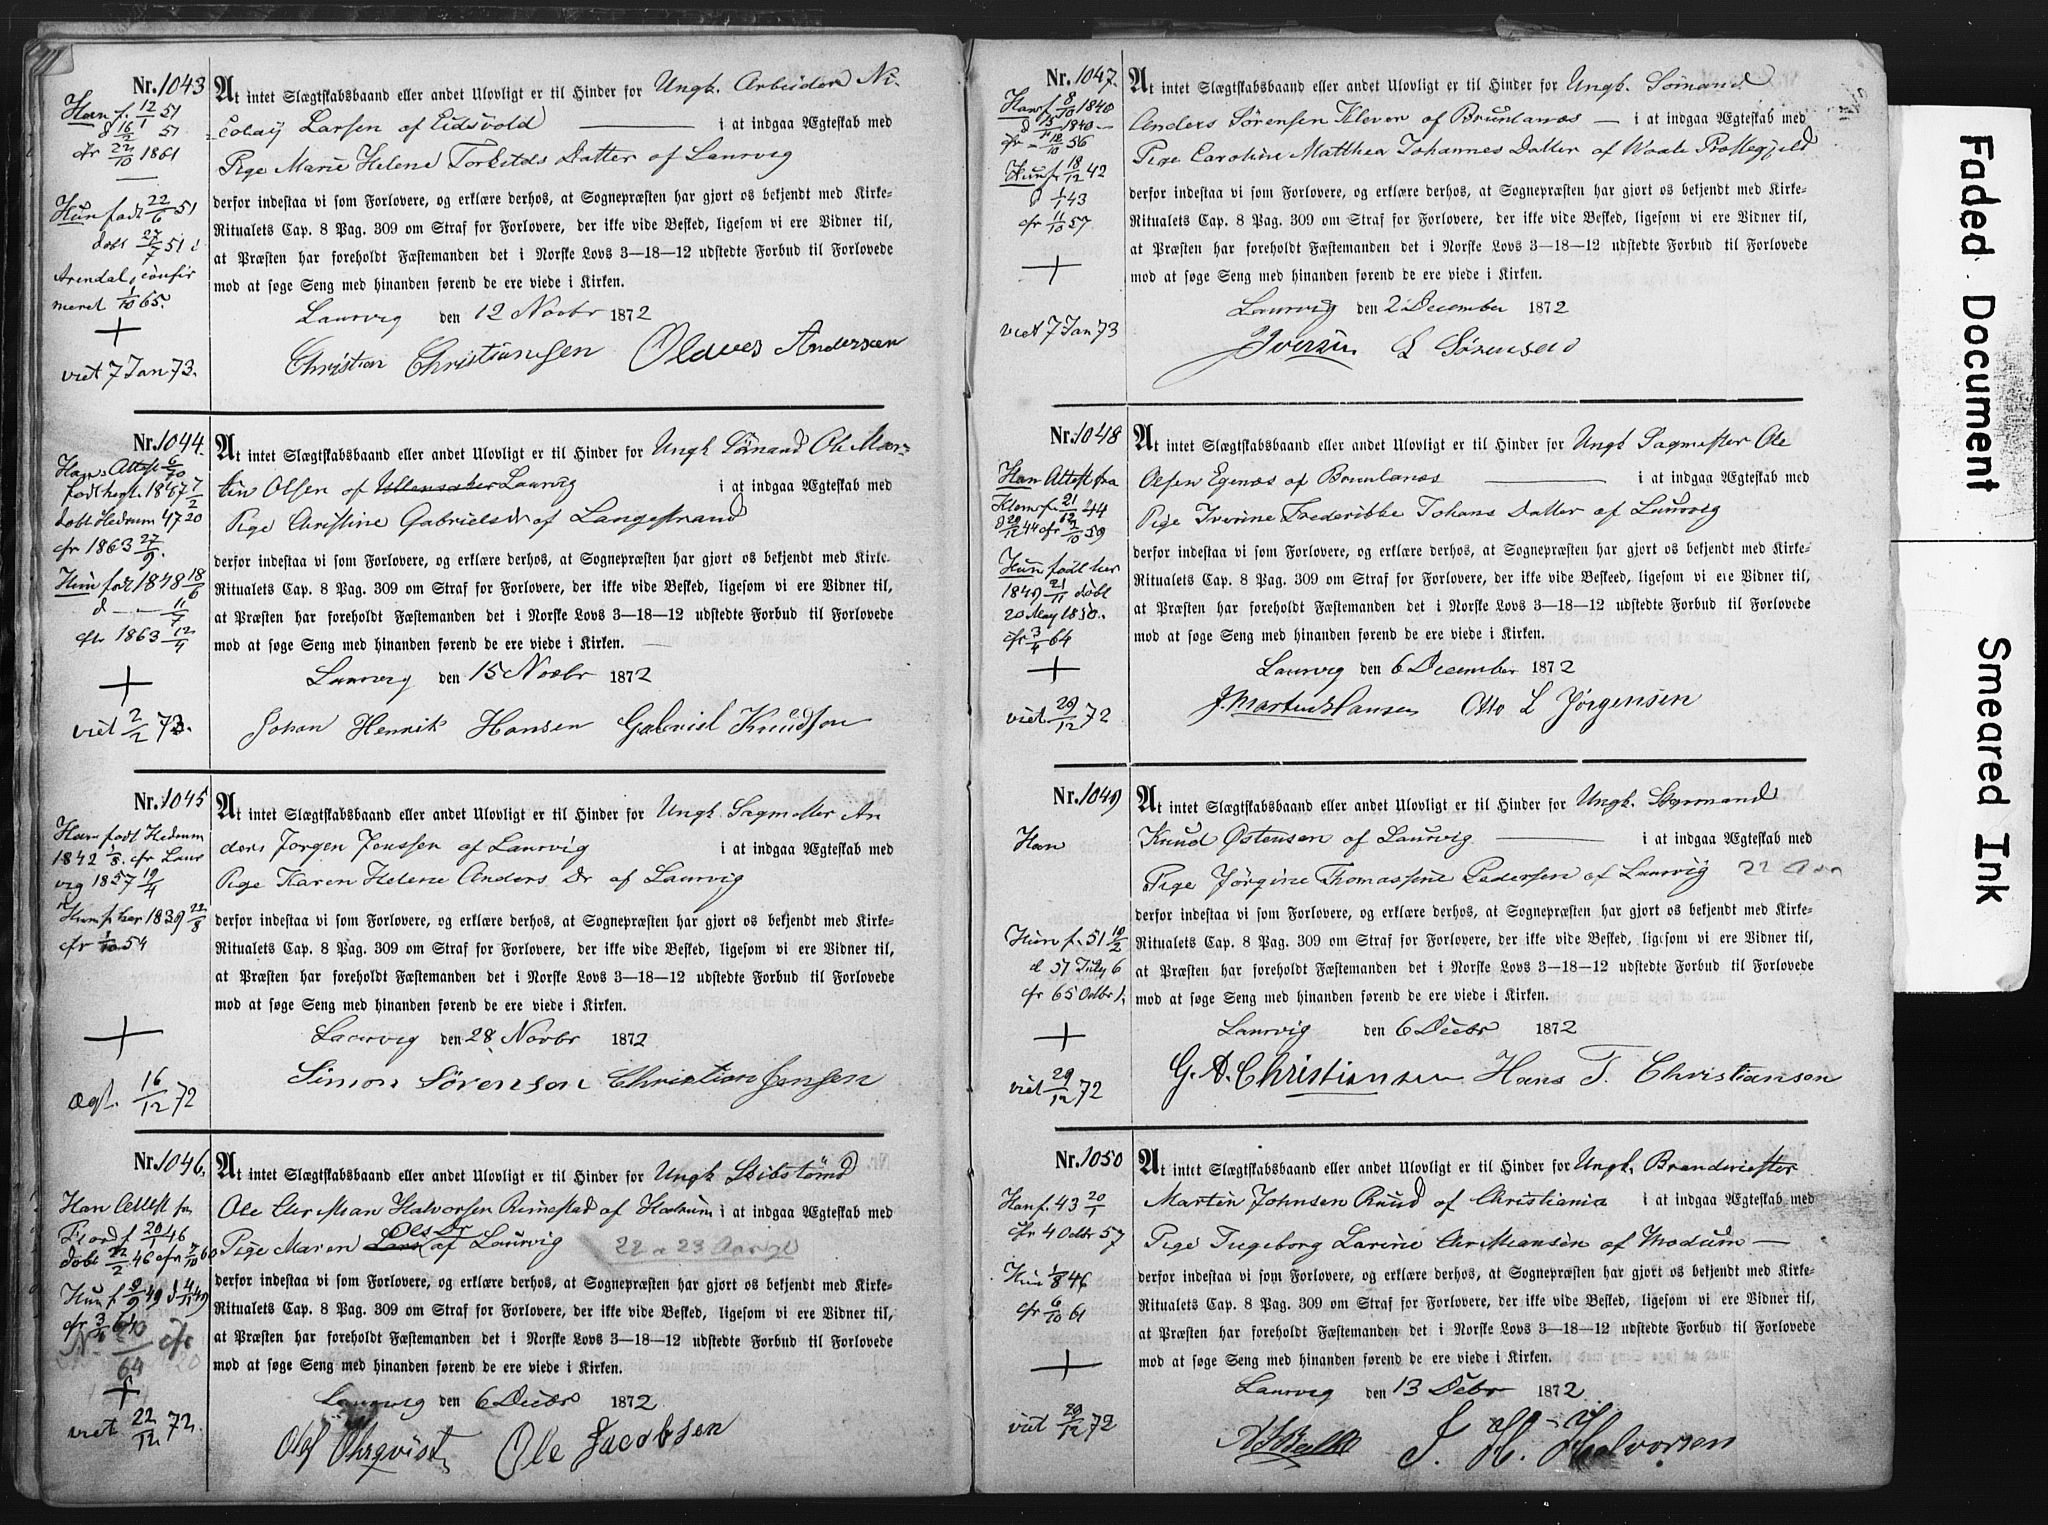 Nr. 1043
Han f. 12/1 51
d 16/2 51
cfr 22/10 1861
Hun født 22/6 51
døbt 27/7 51 i
Arendal, confir
meret 1/10 65.
viet 7 Jan 73.
At intet Slægtskabsbaand eller andet Ulovligt er til Hinder for Ungk. Arbeider Ni-
colay Larsen af Eidsvold i at indgaa Ægteskab med
Pige Marie Helene Torkilds Datter af Laurvig
derfor indestaa vi som Forlovere, og erklære derhos, at Sognepræsten har gjort os bekjendt med Kirke-
Ritualets Cap. 8 Pag. 309 om Straf for Forlovere, der ikke vide Besked, ligesom vi ere Vidner til,
at Præsten har foreholdt Fæstemanden det i Norske Lovs 3—18—12 udstedte Forbud til Forlovede
mod at søge Seng med hinanden førend de ere viede i Kirken.
Laurvig den 12 Novbr 1872
Christian Christiansen Olaves Andersen
Nr. 1044.
Hans Attest 6/10
født her 1847 7/2
døbt Hedrum 47 20
cfr 1863 27/9.
Hun født 1848 18/6
d — 11/7
cfr 1863 12/4
viet 2/2 73.
At intet Slægtskabsbaand eller andet Ulovligt er til Hinder for Ungk Sømand Ole Mar-
tin Olsen af Ullensaker Laurvig i at indgaa Ægteskab med
Pige Christine Gabriels Dr af Langestrand
derfor indestaa vi som Forlovere, og erklære derhos, at Sognepræsten har gjort os bekjendt med Kirke-
Ritualets Cap. 8 Pag. 309 om Straf for Forlovere, der ikke vide Besked, ligesom vi ere Vidner til,
at Præsten har foreholdt Fæstemanden det i Norske Lovs 3—18—12 udstedte Forbud til Forlovede
mod at søge Seng med hinanden førend de ere viede i Kirken.
Laurvig den 15 Novbr 1872
Johan Henrik Hansen Gabriel Knudsen
Nr. 1045
Han født Hedrum
1842 1/8. cfr Laur
vig 1857 19/4
Hun f. her 1839 22/8
cfr 1/10 54
Ægt. 16/12 72
At intet Slægtskabsbaand eller andet Ulovligt er til Hinder for Ungk. Sagmester An
ders Jørgen Jenssen af Laurvig i at indgaa Ægteskab med
Pige Karen Helene Anders Dr af Laurvig
derfor indestaa vi som Forlovere, og erklære derhos, at Sognepræsten har gjort os bekjendt med Kirke-
Ritualets Cap. 8 Pag. 309 om Straf for Forlovere, der ikke vide Besked, ligesom vi ere Vidner til,
at Præsten har foreholdt Fæstemanden det i Norske Lovs 3—18—12 udstedte Forbud til Forlovede
mod at søge Seng med hinanden førend de ere viede i Kirken.
Laurvig den 28 Novbr 1872
Simon Sörenson Christian Jensen
Nr. 1046.
Han Attest fra
Fjord f 20/1 46
døbt 22/2 46 cfr 7/10 60
Hun f 9/9 49 d 4/11 49
cfr 3/4 64
64
viet 22/12 72.
At intet Slægtskabsbaand eller andet Ulovligt er til Hinder for Ungk Skibstømd
Ole Christian Halvorsen Rimestad af Hedrum i at indgaa Ægteskab med
Pige Maren Ols Dr af Laurvig 22 a 23 Aar
derfor indestaa vi som Forlovere, og erklære derhos, at Sognepræsten har gjort os bekjendt med Kirke-
Ritualets Cap. 8 Pag. 309 om Straf for Forlovere, der ikke vide Besked, ligesom vi ere Vidner til,
at Præsten har foreholdt Fæstemanden det i Norske Lovs 3—18—12 udstedte Forbud til Forlovede
mod at søge Seng med hinanden førend de ere viede i Kirken.
Laurvig den 6 Decbr 1872
Olof Öhrqvist Ole Jacobsen
Nr. 1047.
Han f 8/10 1840
d 15/11 1840
cfr 12/10 56
Hun f. 18/12 42
d 1/1 43
cfr 11/10 57
viet 7 Jan 73
At intet Slægtskabsbaand eller andet Ulovligt er til Hinder for Ungk. Sømand
Anders Sørensen Klever af Brunlanæs — i at indgaa Ægteskab med
Pige Caroline Matthea Johannes Datter af Waale Præstegjeld
derfor indestaa vi som Forlovere, og erklære derhos, at Sognepræsten har gjort os bekjendt med Kirke-
Ritualets Cap. 8 Pag. 309 om Straf for Forlovere, der ikke vide Besked, ligesom vi ere Vidner til,
at Præsten har foreholdt Fæstemanden det i Norske Lovs 3—18—12 udstedte Forbud til Forlovede
mod at søge Seng med hinanden førend de ere viede i Kirken.
Laurvig den 2 December 1872
Iversen L Sørensen
Nr. 1048
Han Attest fra
f. 21/12 44
d 29/12 44 cfr 2/10 59
Hun født her
1849 21/11 døbt
20 May 1850.
cfr 3/4 64
viet 29/12 72
At intet Slægtskabsbaand eller andet Ulovligt er til Hinder for Ungk Sagmester Ole
Olsen Egenæs af Brunlanæs i at indgaa Ægteskab med
Pige Iverine Frederikke Johans Datter af Laurvig
derfor indestaa vi som Forlovere, og erklære derhos, at Sognepræsten har gjort os bekjendt med Kirke-
Ritualets Cap. 8 Pag. 309 om Straf for Forlovere, der ikke vide Beskeed, ligesom vi ere Vidner til,
at Præsten har foreholdt Fæstemanden det i Norske Lovs 3—18—12 udstedte Forbud til Forlovede
mod at søge Seng med hinanden førend de ere viede i Kirken.
Laurvig den 6 December 1872
J. Martin Hansen Otto L Jørgensen
Nr. 1049
Han
Hun f. 51 10/2
d 51 July 6
cfr 65 Octbr 1.
viet 29/12 72
At intet Slægtskabsbaand eller andet Ulovligt er til Hinder for Ungk. Styrmand
Knud Østensen af Laurvig i at indgaa Ægteskab med
Pige Jørgine Thomassine Pedersen af Laurvig 22 Aar
derfor indestaa vi som Forlovere, og erklære derhos, at Sognepræsten har gjort os bekjendt med Kirke-
Ritualets Cap. 8 Pag. 309 om Straf for Forlovere, der ikke vide Besked, ligesom vi ere Vidner til,
at Præsten har foreholdt Fæstemanden det i Norske Lovs 3—18—12 udstedte Forbud til Forlovede
mod at søge Seng med hinanden førend de ere viede i Kirken.
Laurvig den 6 Decbr 1872
G. A. Christiansen Hans T. Christiansen
Nr. 1050
Han f. 43 20/1
cfr 4 Octbr 57
Hun 1/8 46
cfr 6/10 61
viet 29/12 72
At intet Slægtskabsbaand eller andet Ulovligt er til Hinder for Ungk. Brandmester
Martin Johnsen Ruud af Christiania i at indgaa Ægteskab med
Pige Ingeborg Larine Christiansen af Modum —
derfor indestaa vi som Forlovere, og erklære derhos, at Sognepræsten har gjort os bekjendt med Kirke-
Ritualets Cap. 8 Pag. 309 om Straf for Forlovere, der ikke vide Besked, ligesom vi ere Vidner til,
at Præsten har foreholdt Fæstemanden det i Norske Lovs 3—18—12 udstedte Forbud til Forlovede
mod at søge Seng med hinanden førend de ere viede i Kirken.
Laurvig den 13 Debr 1872
J. H. Halvorsen
Faded Document
Smeared Ink